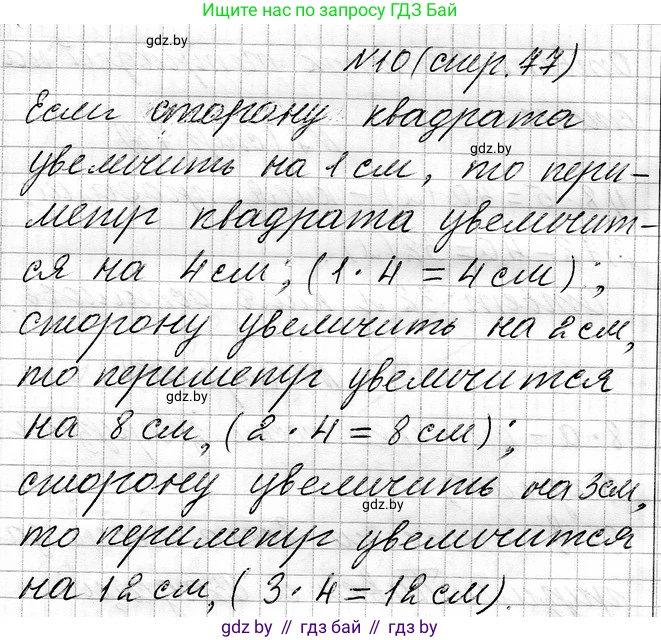 Ищите нас по запросу ГДЗ Бай
gdz.by
№10 (стр. 77)
Если сторону квадрата
gdz.by
увеличить на 1 см, то пери-
метр квадрата увеличит-
ся на 4 см; (1 · 4 = 4 см);
сторону увеличить на 2 см,
то периметр увеличится
gdz.by
на 8 см, (2 · 4 = 8 см);
сторону увеличить на 3 см,
gdz.by
то периметр увеличится
на 12 см, (3 · 4 = 12 см).
gdz.by // гдз бай // gdz.by